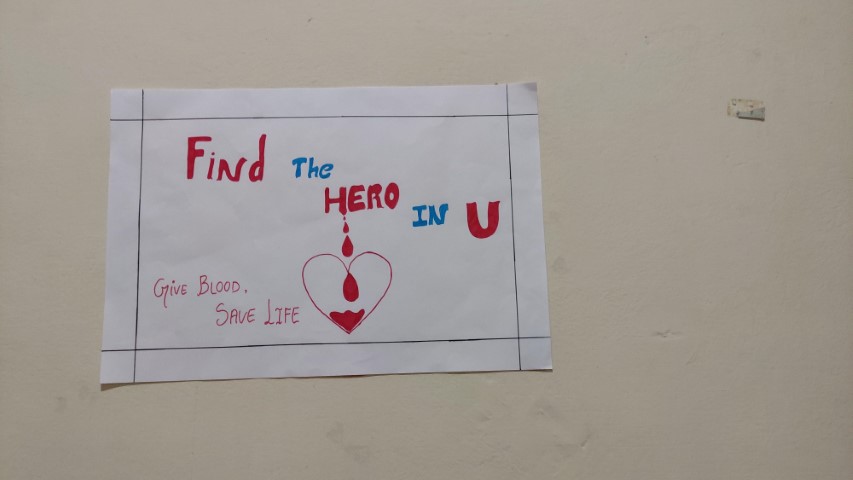 Find The
HERO
IN U
Give Blood.
Save Life